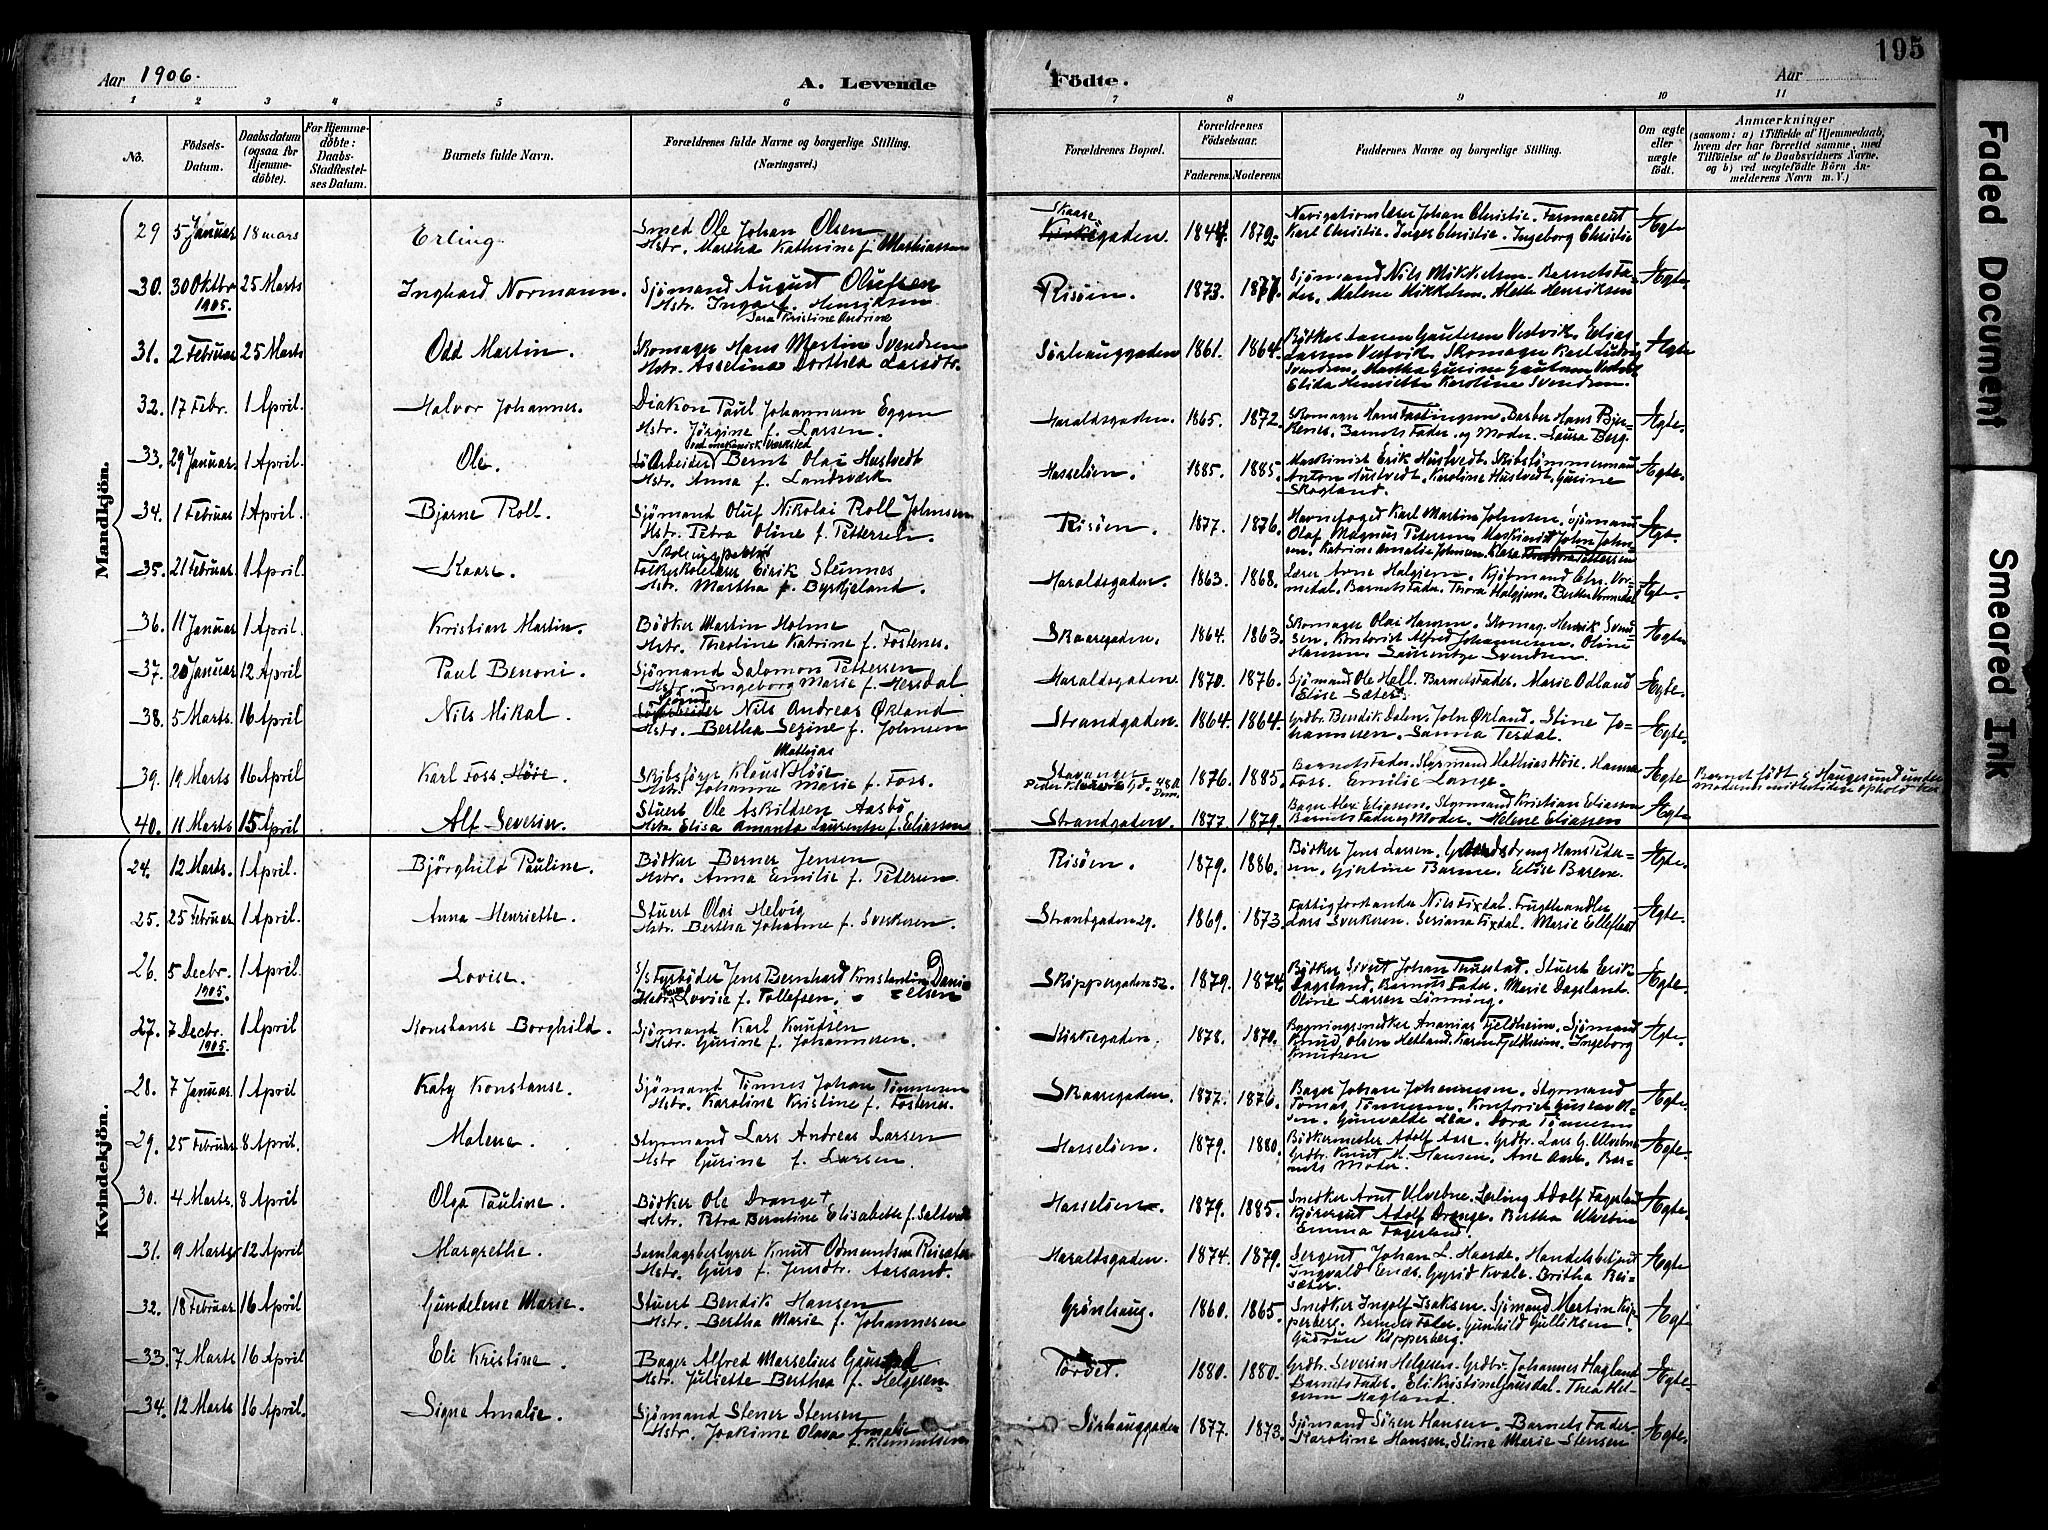 195
Aar 1906.
A. Levende
Födte.
Aar
1 2 3 4 5 6 7 8 9 10 11
No.
Födsels-Datum.
Daabsdatum (ogsaa for Hjemmedöbte).
For Hjemmedöbte: Daabs-Stadfæstelses Datum.
Barnets fulde Navn.
Forældrenes fulde Navne og borgerlige Stilling.
(Næringsvei.)
Forældrenes Bopæl.
Forældrenes Födselsaar.
Faderens. Moderens.
Faddernes Navne og borgerlige Stilling.
Om ægte eller uægte födt.
Anmærkninger
(saasom: a) i Tilfælde af Hjemmedaab, hvem der har forrettet samme, med Tilföielse af to Daabsvidners Navne, og b) ved uægtefödte Börn Anmelderens Navn m. V.)
Mandkjön.
29 5 Januar 18 mars Erling. Smed Ole Johan Olsen
Hstr. Martha Kathrine f. Mathiassen
Skaaregaden. 1844. 1872. Navigationslærer Johan Christie. Farmaceut
Karl Christie. Inger Christie. Ingeborg Christie Ægte
30. 30 Oktbr 1905. 25 Marts Inghard Normann. Sjömand August Olufsen
Hstr. Inga f. Henriksen
Sara Kristine Andrine
Risöen. 1873. 1877. Sjömand Nils Mikkelsen. Barnets Fader. Malene Mikkelsen. Alette Henriksen Ægte.
31. 2 Februar 25 Marts Odd Martin. Skomager Hans Martin Svendsen
Hstr. Asseline Dorthea Larsdtr.
Sörhauggaden 1861. 1864. Bödker Lassen Gautesen Vestvik. Elias
Larsen Vestvik. Skomager Karl Ludvig
Svendsen. Martha Gurine
Elida Henriette Karoline Svendsen. Ægte
32. 17 Febr. 1 April. Halvor Johannes. Diakon Paul Johannesen Eggen
Hstr. Jörgine f. Larsen.
Haraldsgaden. 1865. 1872. Skomager Hans Fastingsen. Barber Hans Bjerkenes. Barnets Fader. og Moder. Laura Berg. Ægte.
33. 29 Januar. 1 April. Ole. Arbeider Bernt Olai Hustvedt
ved mekanisk Værksted
Hstr. Anna f. Landsværk
Hasselöen. 1885. 1885. Maskinist Erik Hustvedt. Skibstömmermand
Anton Hustvedt. Karoline Hustvedt. Gurine
Skogland. Ægte.
34. 1 Februar 1 April. Bjarne Roll. Sjömand Oluf Nikolai Roll Johnsen
Hstr. Petra Oline f. Pettersen.
Risöen. 1877. 1876. Havnefoged Karl Martin Johnsen. Sjömand
Olaf Magnus Petersen Maskinist John Johnsen. Katrine Amalie Johnsen. Ægte
35. 21 Februar. 1 April Kaare. Folkeskolelærer Eirik Steinnes
Hstr. Martha f. Byrkjeland.
Haraldsgaden. 1863. 1868. Lærer Arne Halgjem. Kjöbmand Chr. Vormedal. Barnets Fader. Thora Halgjem. Berthe Vormedal Ægte.
36. 11 Januar 1 April. Kristian Martin. Bödker Martin Holme
Hstr. Theoline Katrine f. Fostenes.
Skaaregaden. 1864. 1863. Skomager Olai Hansen. Skomag. Henrik Svendsen. Kontorist Alfred Johannesen. Oline
Hansen Laurentze Svendsen. Ægte
37. 20 Januar 12 April Paul Benoni. Sjömand Salomon Pettersen
Hstr. Ingeborg Marie f. Hersdal
Haraldsgaden. 1870. 1876. Sjömand Ole Hell. Barnets Fader. Marie Odland
Elise Sæter. Ægte.
38. 5 Marts. 16 April Nils Mikal. Nils Andreas Økland
Hstr. Bertha Sezine f. Johnsen
Strandgaden. 1864. 1864. Grdbr. Bendik Dalen. John Økland. Stine Johannesen. Sanna Tesdal. Ægte.
39. 19 Marts 16 April Karl Foss Höie. Skibsförer Klaus Mathias Höie
Hstr. Johanne Marie f. Foss.
Stavanger 1876. 1885. Barnets Fader. Styrmand Mathias Höie. Hanna
Foss. Emilie Lange. Ægte Barnet födt i Haugesund under
moderens midlertidige ophold her
40. 11 Marts 15 April Alf Severin. Stuert Ole Askildsen Aasbö
Hstr. Elisa Amanda Laurentse f. Eliassen
Strandgaden. 1877. 1879. Bager Alex Eliassen. Styrmand Kristian Eliassen
Barnets Fader og Moder. Helene Eliassen Ægte
Kvindekjön.
24. 12 Marts. 1 April. Björghild Pauline. Bödker Berner Jensen
Hstr. Anna Emilie f. Petersen.
Risöen. 1879. 1886. Bödker Jens Larsen. Hans Petersen. Gjertine Barme. Elise Ægte.
25. 25 Februar 1 April. Anna Henriette. Stuert Olai Helvig
Hstr. Bertha Johanne f. Sverksen.
Strandgaden 29. 1869. 1873. Fattigforstander Nils Fixdal. Frugthandler
Lars Sverksen. Seriana Fixdal. Marie Ellefsen Ægte.
26. 5 Decbr. 1905. 1 April Lovise. Fyrböder Jens Bernhard Konstantin Danielsen
Hstr. Lovise f. Tollefsen.
Skippergaden 52. 1879. 1874. Bödker Sivert Johan Thuestad. Stuert Erik
Dagsland. Barnets Fader. Marie Dagsland.
Oline Larsen Lönning. Ægte.
27. 7 Decbr. 1905. 1 April Konstanse Borghild. Sjömand Karl Knudsen
Hstr. Gurine f. Johannesen.
Kirkegaden. 1878. 1870. Bygningssnedker Ananias Fjeldheim. Sjömand
Knud Olsen Hetland. Karen Fjeldheim. Ingeborg
Knudsen Ægte.
28. 7 Januar. 1 April Katy Konstanse. Sjömand Tönnes Johan Tönnesen
Hstr. Karoline Kristine f. Fostenes.
Skaaregaden. 1877. 1876. Bager Johan Johannessen. Styrmand
Tomas Tönnesen. Kontorist Gustav Olsen. Gunvalde Lea. Dora Tönnesen Ægte.
29. 25 Februar 8 April. Malene. Styrmand Lars Andreas Larsen
Hstr Gurine f. Larsen.
Hasselöen. 1879. 1880. Bödkermester Adolf Aase. Grdbr. Lars G. Ulvebne
Grdbr. Knut H. Hansen. Ane Aase. Barnets Moder. Ægte.
30. 4 Marts. 8 April Olga Pauline. Bödker Ole Drange
Hstr. Petra Berntine Elisabethe f.
Hasselöen. 1879. 1885. Snedker Arnt Ulvebne. Lærling Adolf Fagerland
Kjöregut Adolf Drange. Bertha
Emma Fagerland. Ægte.
31. 9 Marts 12 April Margrethe. Samlagsbestyrer Knut Odmundsen Reisæter
Hstr. Guro f. Jensdtr. Aarsand.
Haraldsgaden. 1874. 1879. Sergent Johan L. Haarde. Handelsbetjent
Ingvald Enes. Gyrid Kvale. Britha Reisæter. Ægte
32. 18 Februar 16 April Gundelene Marie. Stuert Bendik Hansen
Hstr. Bertha Marie f. Johannesen
Grönhaug. 1860. 1865. Snedker Ingolf Isaksen. Sjömand Martin Kopperberg. Barnets Fader. Gunhild Gulliksen.
Gudrun Kopperberg. Ægt
33. 7 Marts 16 April Eli Kristine. Bager Alfred Marselius
Hstr. Juliette Berthea f. Helgesen
Torvet. 1880. 1880. Grdbr. Severin Helgesen. Grdbr. Johannes Hagland
Barnets Fader. Eli Kristine Thea Helgesen Hagland Ægte
34. 12 Marts 16 April. Signe Amalie. Sjömand Stener Stensen
Hstr. Joakime Olava Amalie
f. Klementsen
Sörhauggaden 1877. 1873. Sjömand Sören Hansen. Barnets Fader
Karoline Hansen. Stine Marie Stensen Ægte.
Faded Document
Smeared Ink